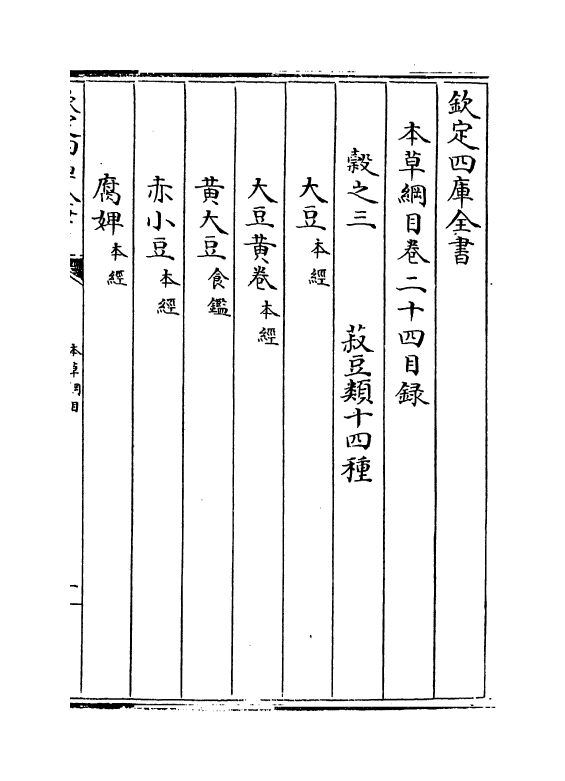 欽定四庫全書
本草綱目卷二十四目録
穀之三　菽豆類十四種
大豆本經
大豆黄卷本經
黄大豆食鑑
赤小豆本經
腐婢本經
本草綱目
一